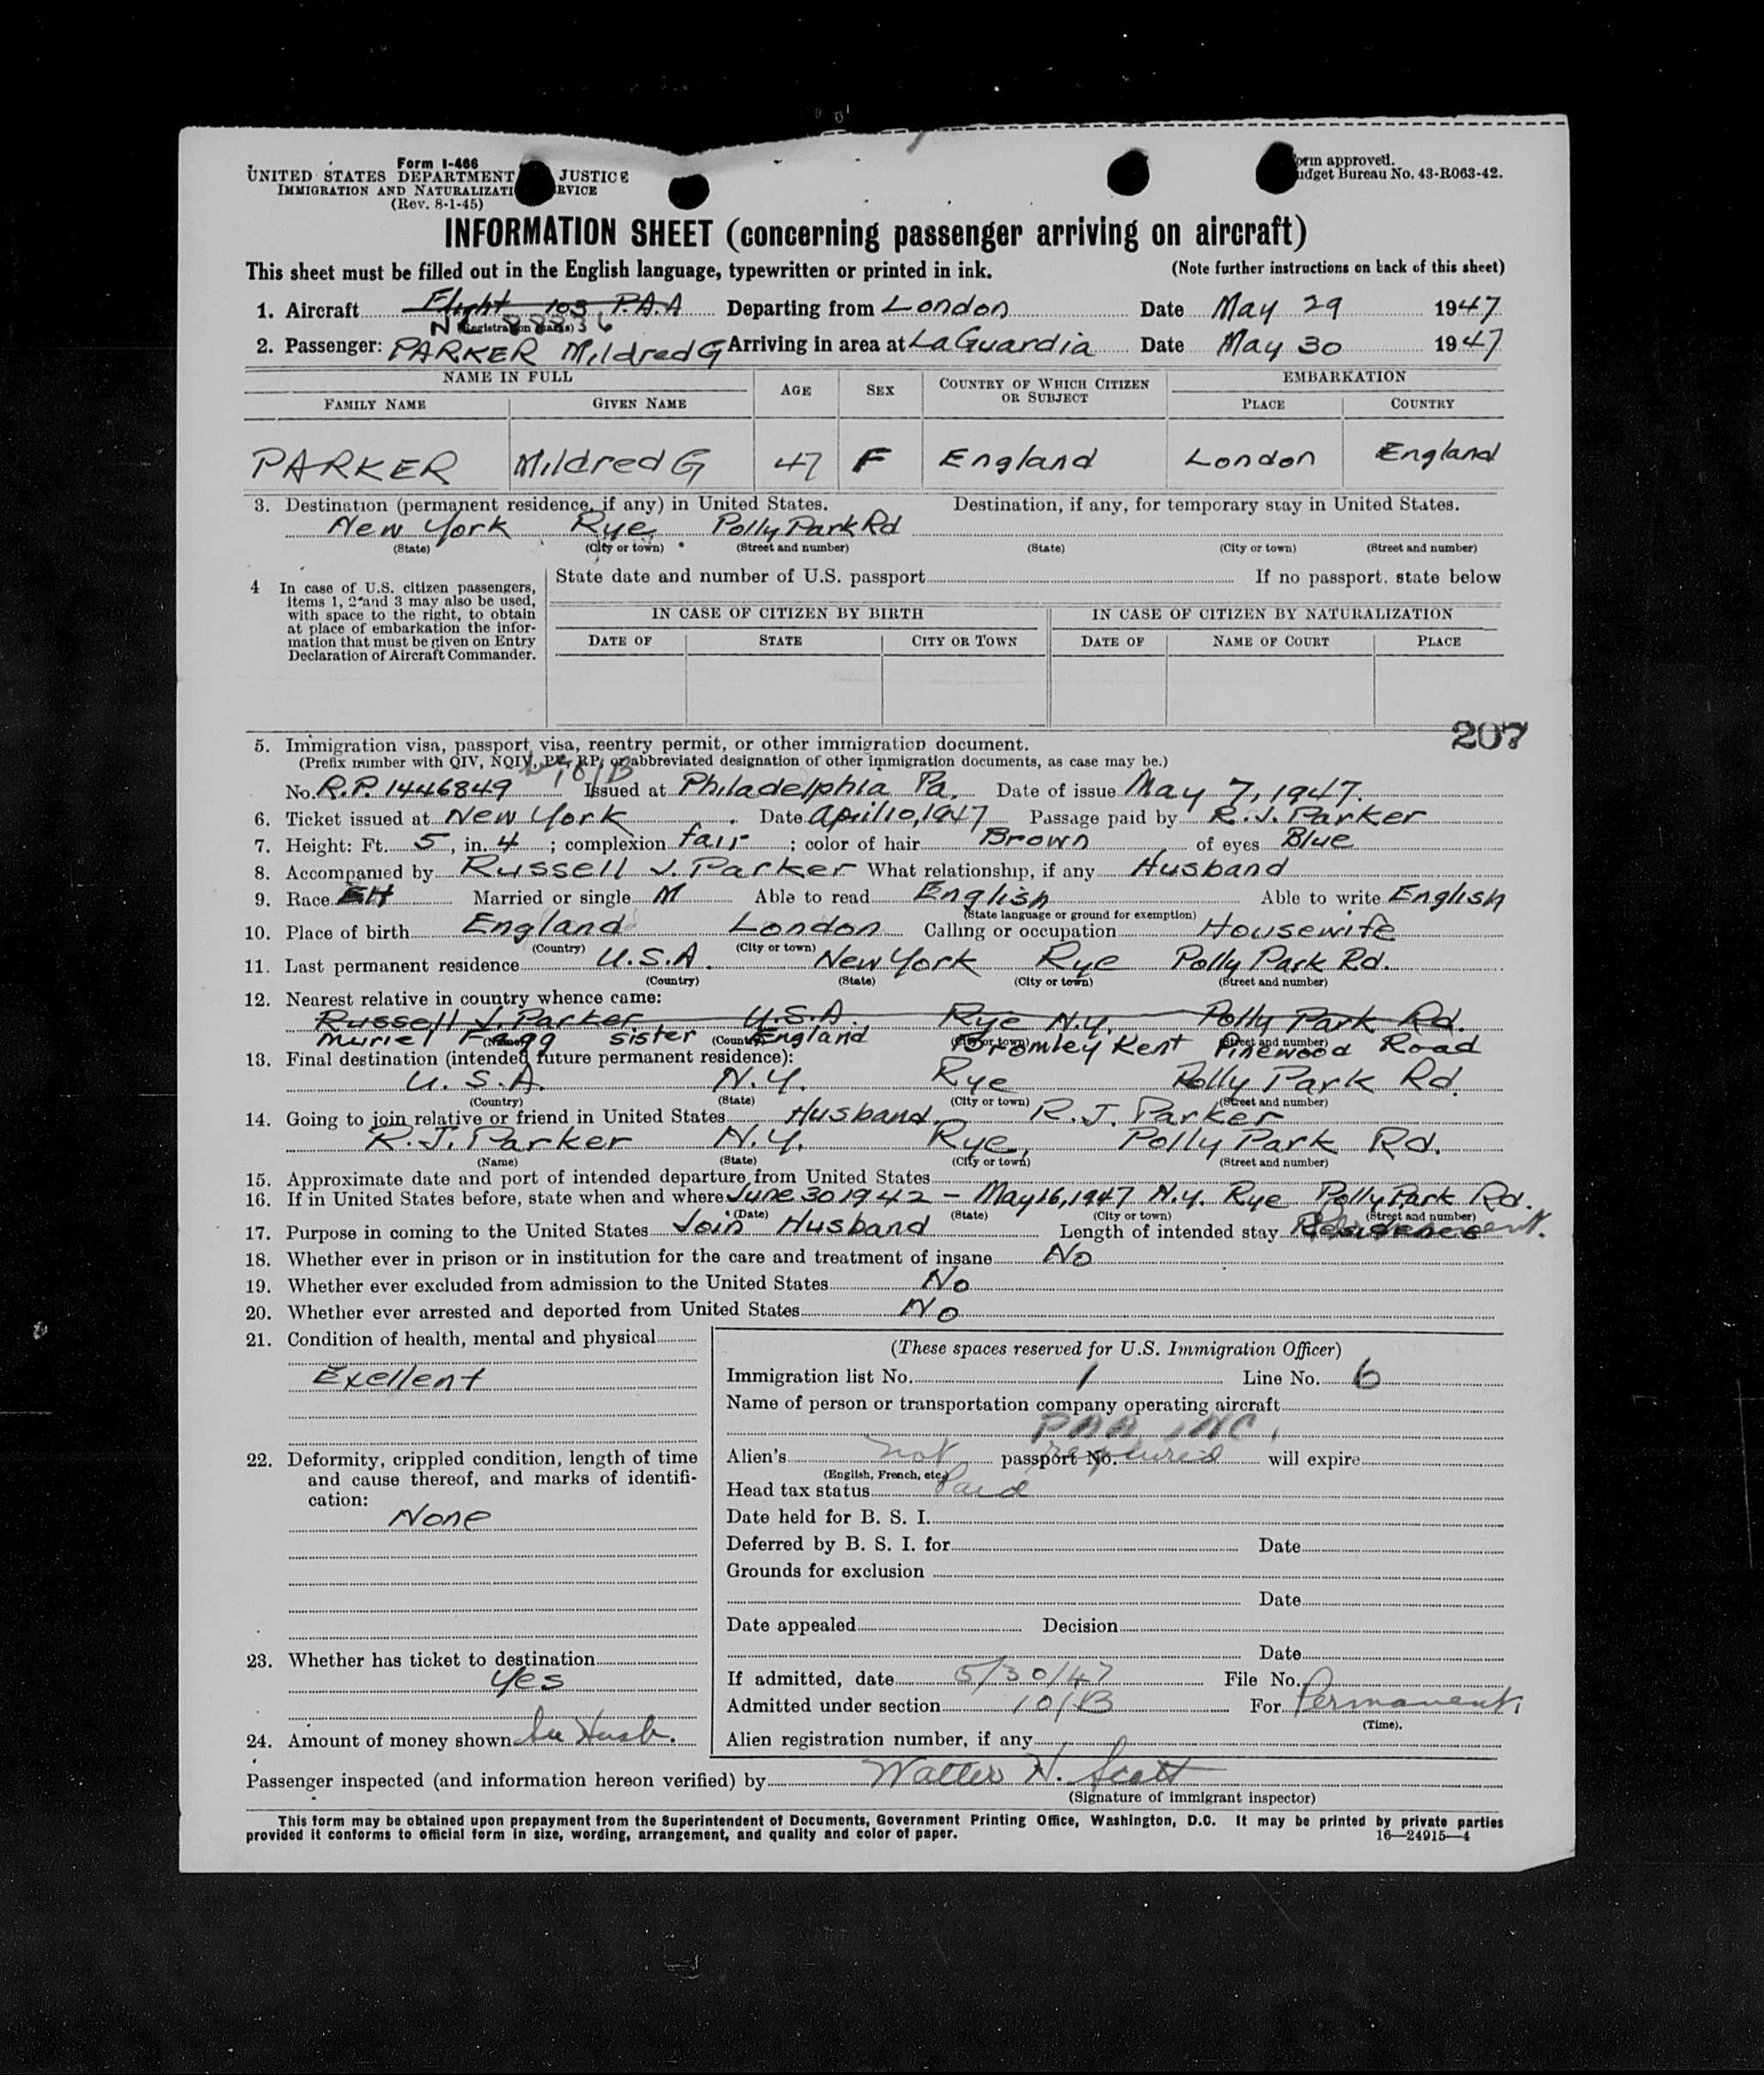 Form I-466
UNITED STATES DEPARTMENT JUSTICE
IMMIGRATION AND NATURALIZATI RVICE
(Rev. 8-1-45)
orm approved.
udget Bureau No. 43-R063-42.
INFORMATION SHEET (concerning passenger arriving on aircraft)
This sheet must be filled out in the English language, typewritten or printed in ink. (Note further instructions on back of this sheet)
1. Aircraft Flight 103 P.A.A Departing from London Date May 29 1947
NC 88836 (Registration marks)
2. Passenger: PARKER Mildred G Arriving in area at La Guardia Date May 30 1947
NAME IN FULL AGE SEX COUNTRY OF WHICH CITIZEN OR SUBJECT EMBARKATION
FAMILY NAME GIVEN NAME PLACE COUNTRY
PARKER Mildred G 47 F England London England
3. Destination (permanent residence, if any) in United States. Destination, if any, for temporary stay in United States.
New York Rye Polly Park Rd
(State) (City or town) (Street and number) (State) (City or town) (Street and number)
4 In case of U.S. citizen passengers,
items 1, 2 and 3 may also be used,
with space to the right, to obtain
at place of embarkation the infor-
mation that must be given on Entry
Declaration of Aircraft Commander.
State date and number of U.S. passport If no passport, state below
IN CASE OF CITIZEN BY BIRTH IN CASE OF CITIZEN BY NATURALIZATION
DATE OF STATE CITY OR TOWN DATE OF NAME OF COURT PLACE
207
5. Immigration visa, passport visa, reentry permit, or other immigration document.
(Prefix number with QIV, NQIV, PV, RP, or abbreviated designation of other immigration documents, as case may be.)
101B
No. R.P. 1446849 Issued at Philadelphia Pa. Date of issue May 7, 1947.
6. Ticket issued at New York Date April 10, 1947 Passage paid by R. J. Parker
7. Height: Ft. 5, in. 4; complexion fair; color of hair Brown of eyes Blue
8. Accompanied by Russell J. Parker What relationship, if any Husband
9. Race EH Married or single M Able to read English Able to write English
(State language or ground for exemption)
10. Place of birth England London Calling or occupation Housewife
(Country) (City or town)
11. Last permanent residence U.S.A. New York Rye Polly Park Rd.
(Country) (State) (City or town) (Street and number)
12. Nearest relative in country whence came:
Russell J. Parker U.S.A. Rye N.Y. Polly Park Rd.
Muriel Fagg sister England Bromley Kent Pinewood Road
(Name) (Country) (City or town) (Street and number)
13. Final destination (intended future permanent residence):
U.S.A. N.Y. Rye Polly Park Rd.
(Country) (State) (City or town) (Street and number)
14. Going to join relative or friend in United States Husband. R. J. Parker
R. J. Parker N.Y. Rye, Polly Park Rd.
(Name) (State) (City or town) (Street and number)
15. Approximate date and port of intended departure from United States
16. If in United States before, state when and where June 30 1942 - May 16, 1947 N.Y. Rye Polly Park Rd.
(Date) (State) (City or town) (Street and number)
17. Purpose in coming to the United States Join Husband Length of intended stay Residence
18. Whether ever in prison or in institution for the care and treatment of insane No
19. Whether ever excluded from admission to the United States No
20. Whether ever arrested and deported from United States No
21. Condition of health, mental and physical
Exellent
22. Deformity, crippled condition, length of time
and cause thereof, and marks of identifi-
cation:
None
23. Whether has ticket to destination
Yes
24. Amount of money shown See Husb.
(These spaces reserved for U.S. Immigration Officer)
Immigration list No. 1 Line No. 6
Name of person or transportation company operating aircraft
PAA, INC.
Alien's not passport No. required will expire
(English, French, etc.)
Head tax status Paid
Date held for B. S. I.
Deferred by B. S. I. for Date
Grounds for exclusion
Date
Date appealed Decision
Date
If admitted, date 5/30/47 File No.
Admitted under section 101B For Permanent
(Time).
Alien registration number, if any
Passenger inspected (and information hereon verified) by Walter H. Scott
(Signature of immigrant inspector)
This form may be obtained upon prepayment from the Superintendent of Documents, Government Printing Office, Washington, D.C. It may be printed by private parties
provided it conforms to official form in size, wording, arrangement, and quality and color of paper. 16—24915—4